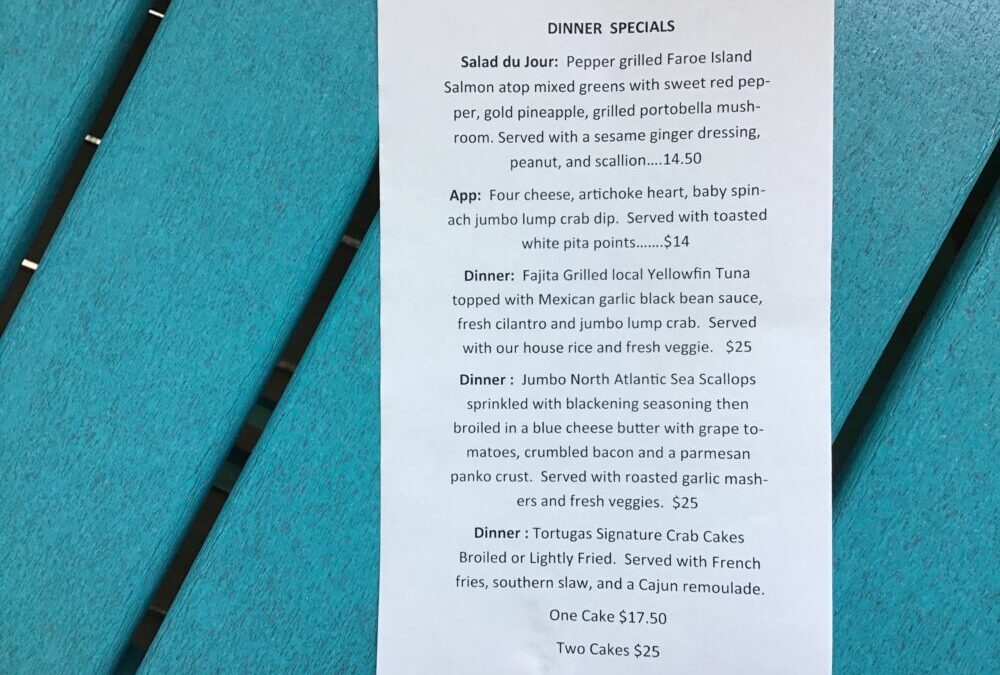 DINNER SPECIALS
Salad du Jour: Pepper grilled Faroe Island
Salmon atop mixed greens with sweet red pep-
per, gold pineapple, grilled portobella mush-
room. Served with a sesame ginger dressing,
peanut, and scallion....14.50
App: Four cheese, artichoke heart, baby spin-
ach jumbo lump crab dip. Served with toasted
white pita points.......$14
Dinner: Fajita Grilled local Yellowfin Tuna
topped with Mexican garlic black bean sauce,
fresh cilantro and jumbo lump crab. Served
with our house rice and fresh veggie. $25
Dinner : Jumbo North Atlantic Sea Scallops
sprinkled with blackening seasoning then
broiled in a blue cheese butter with grape to-
matoes, crumbled bacon and a parmesan
panko crust. Served with roasted garlic mash-
ers and fresh veggies. $25
Dinner : Tortugas Signature Crab Cakes
Broiled or Lightly Fried. Served with French
fries, southern slaw, and a Cajun remoulade.
One Cake $17.50
Two Cakes $25